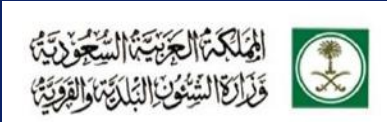 المملكة العربية السعودية
وزارة الشئون البلدية والقروية